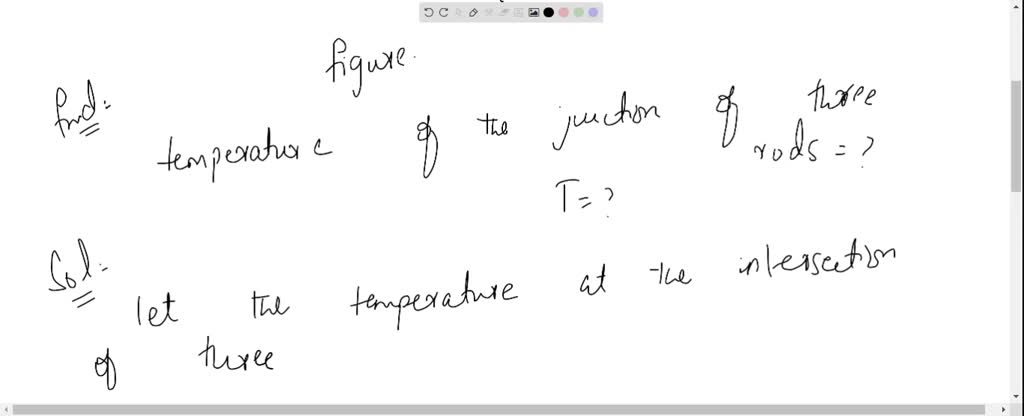 figure.
find:
temperature of the junction of three
rods = ?
T = ?
Sol:
let the temperature at the intersection
of three